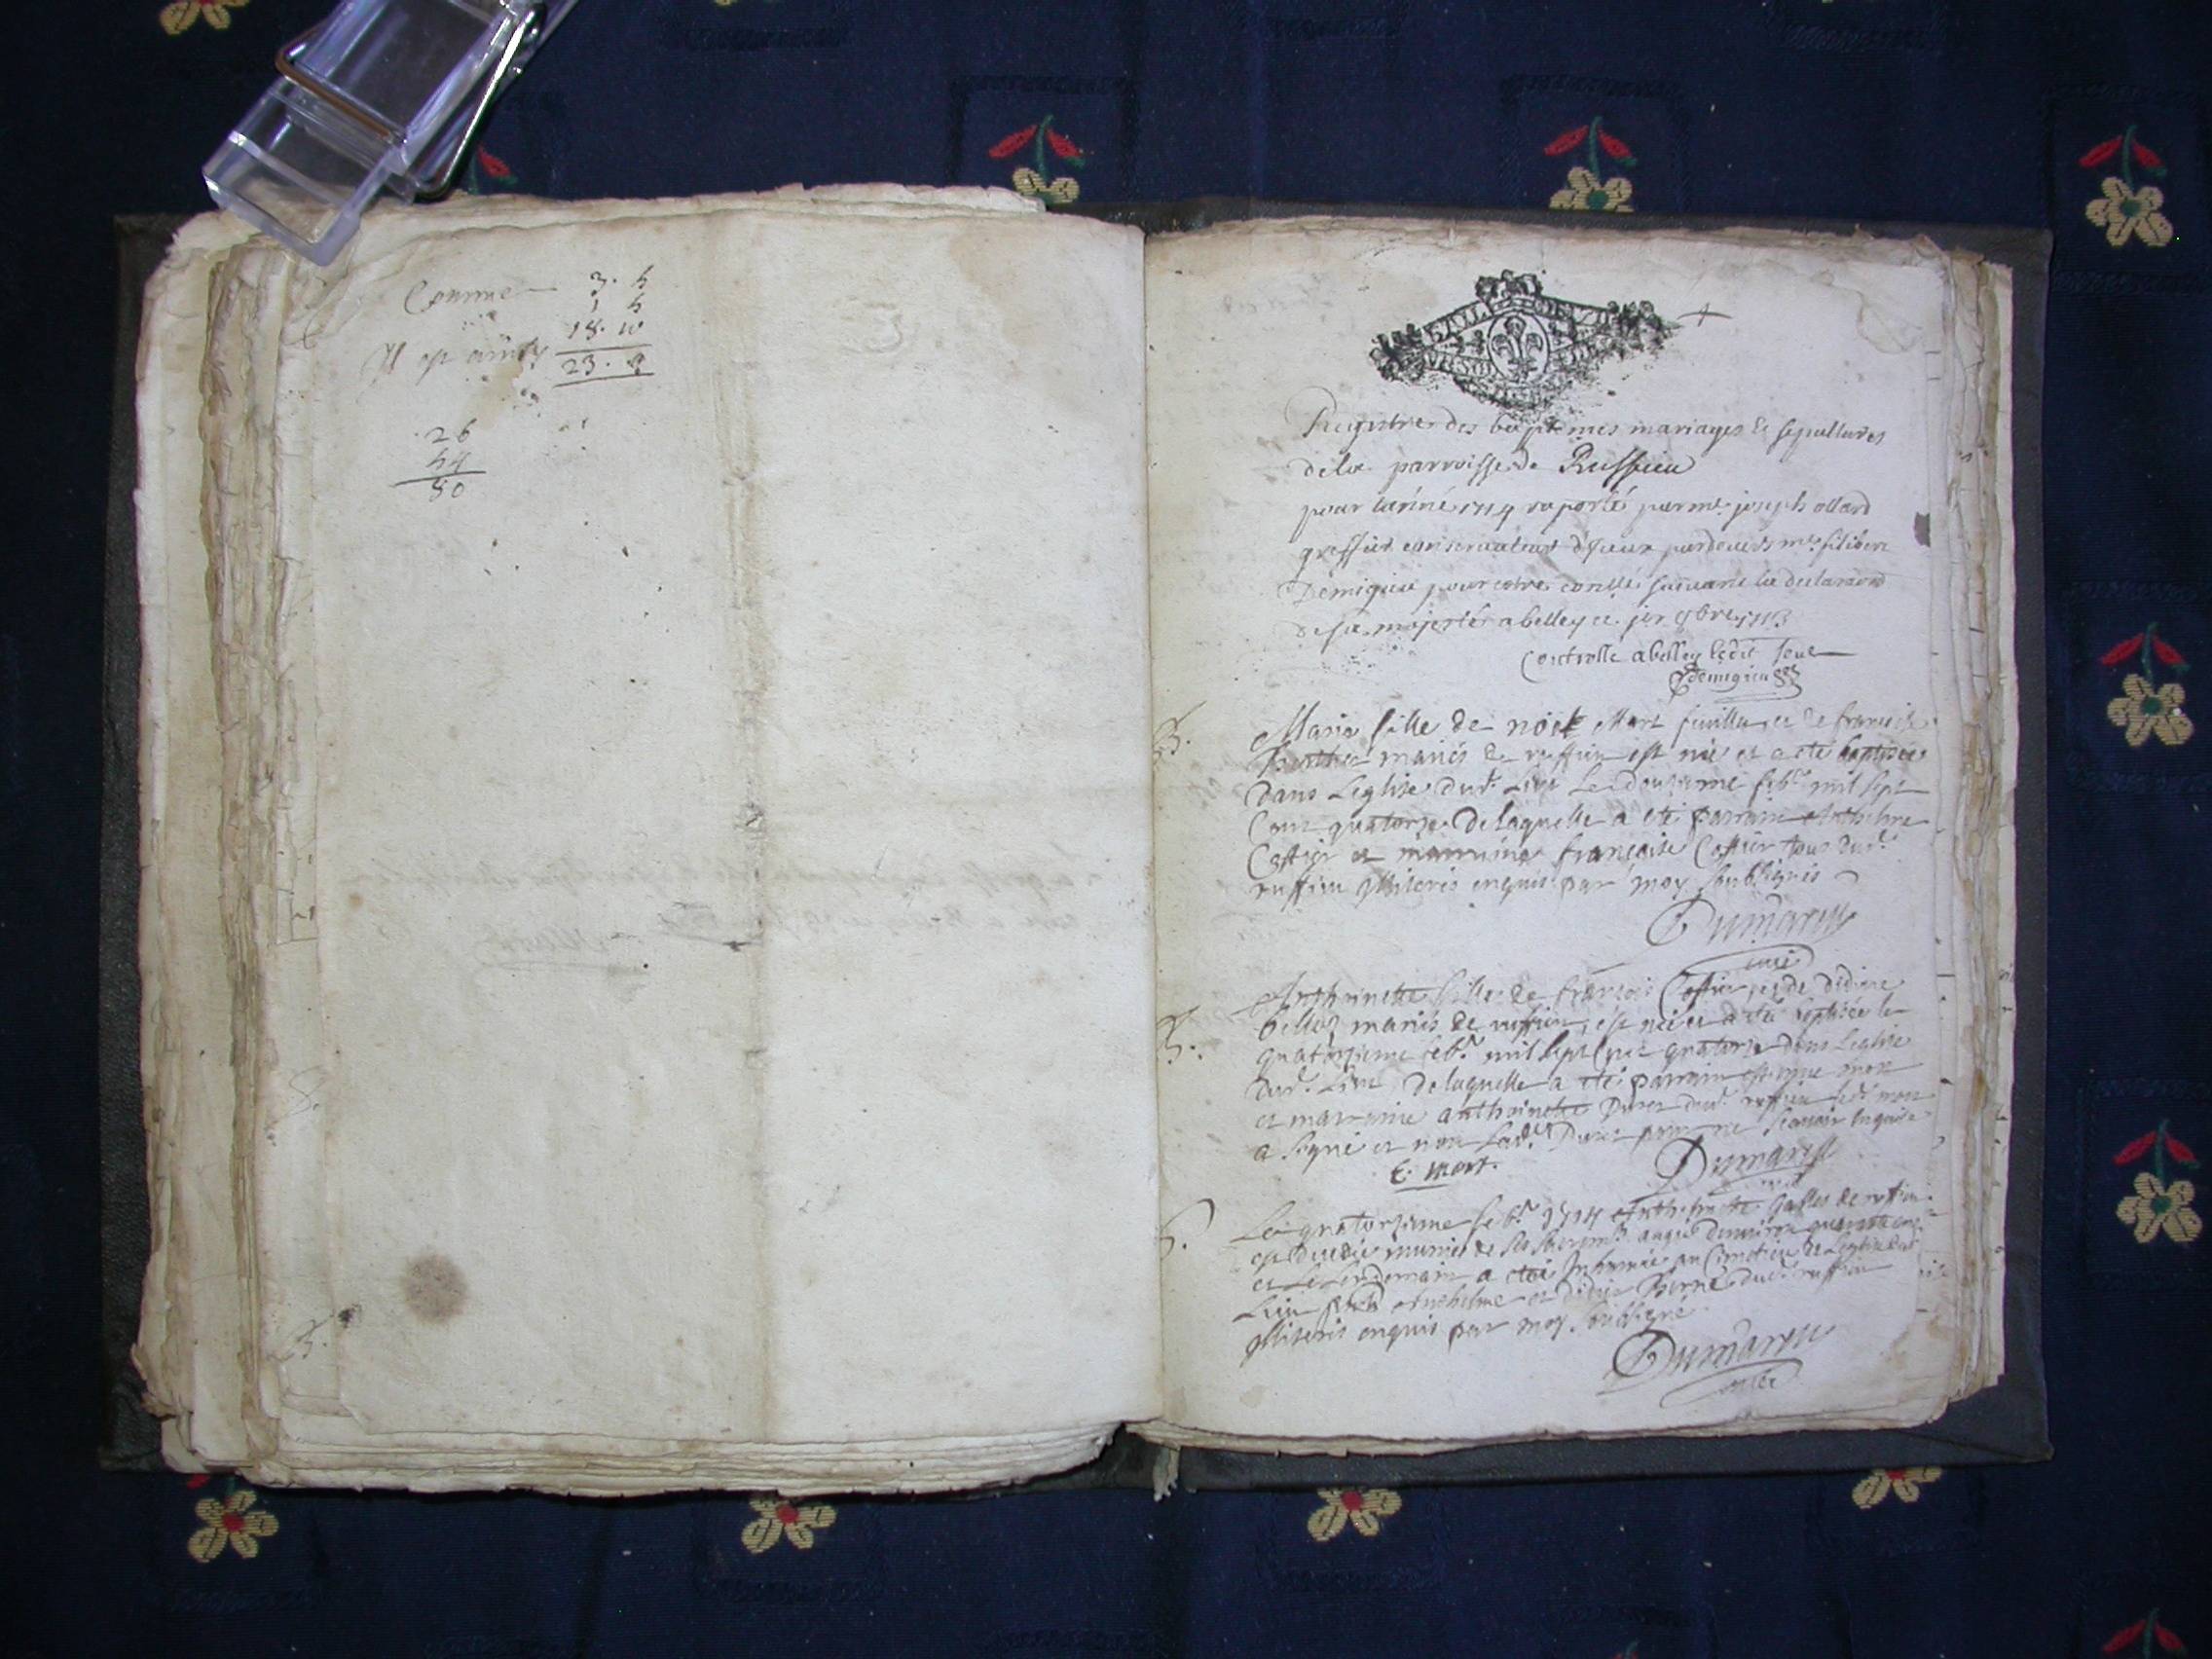 Comme 3. 5
1 5
18. 10
Il est ainsy 23. 0
26
54
80
Registre des baptemes mariages & sepultures
de la parroisse de Ruffieu
pour lanné 1714 raporté par me. joseph ollard
greffier conservateur diceux pardevers me. filibert
Demigieu pour estre conllé suivant la declaraon
de sa majesté a belley ce jer. 9bre 1713
Controlle a belley ledit Jour
Demigieu
B.
Marie fille de noel Mort feuillu et de francoise
mariés de ruffieu est née et a eté baptisée
dans Leglise dud. Lieu Le douzieme feb. mil sept
Cent quatorze de laquelle a eté parrain Anthelme
Coffier et marraine françoise Coffier tous dud.
ruffieu Illiterés enquis par moy soubsignés
Dumarest
curé
B.
Anthoinette fille de françois Coffier et de didiere
belloz mariés de ruffieu, est née et a eté baptisée le
quatorzieme feb. mil sept Cent quatorze dans Leglise
dud. Lieu de laquelle a eté parrain mort
et marraine anthoinette dud. ruffieu led. mort
a signé et non Lad. pour ne scavoir enquise
E. mort.
Dumarest
curé
S.
Le quatorzieme feb. 1714 Anthoinette de ruffieu
est decedée munie de ses sacrem. aagée denviron quarante
et Le Lendemain a eté Inhumée au Cimetiere de Leglise dud.
Lieu Anthelme et didier dud. ruffieu
Illiterés enquis par moy soubsigné
Dumarest
curé